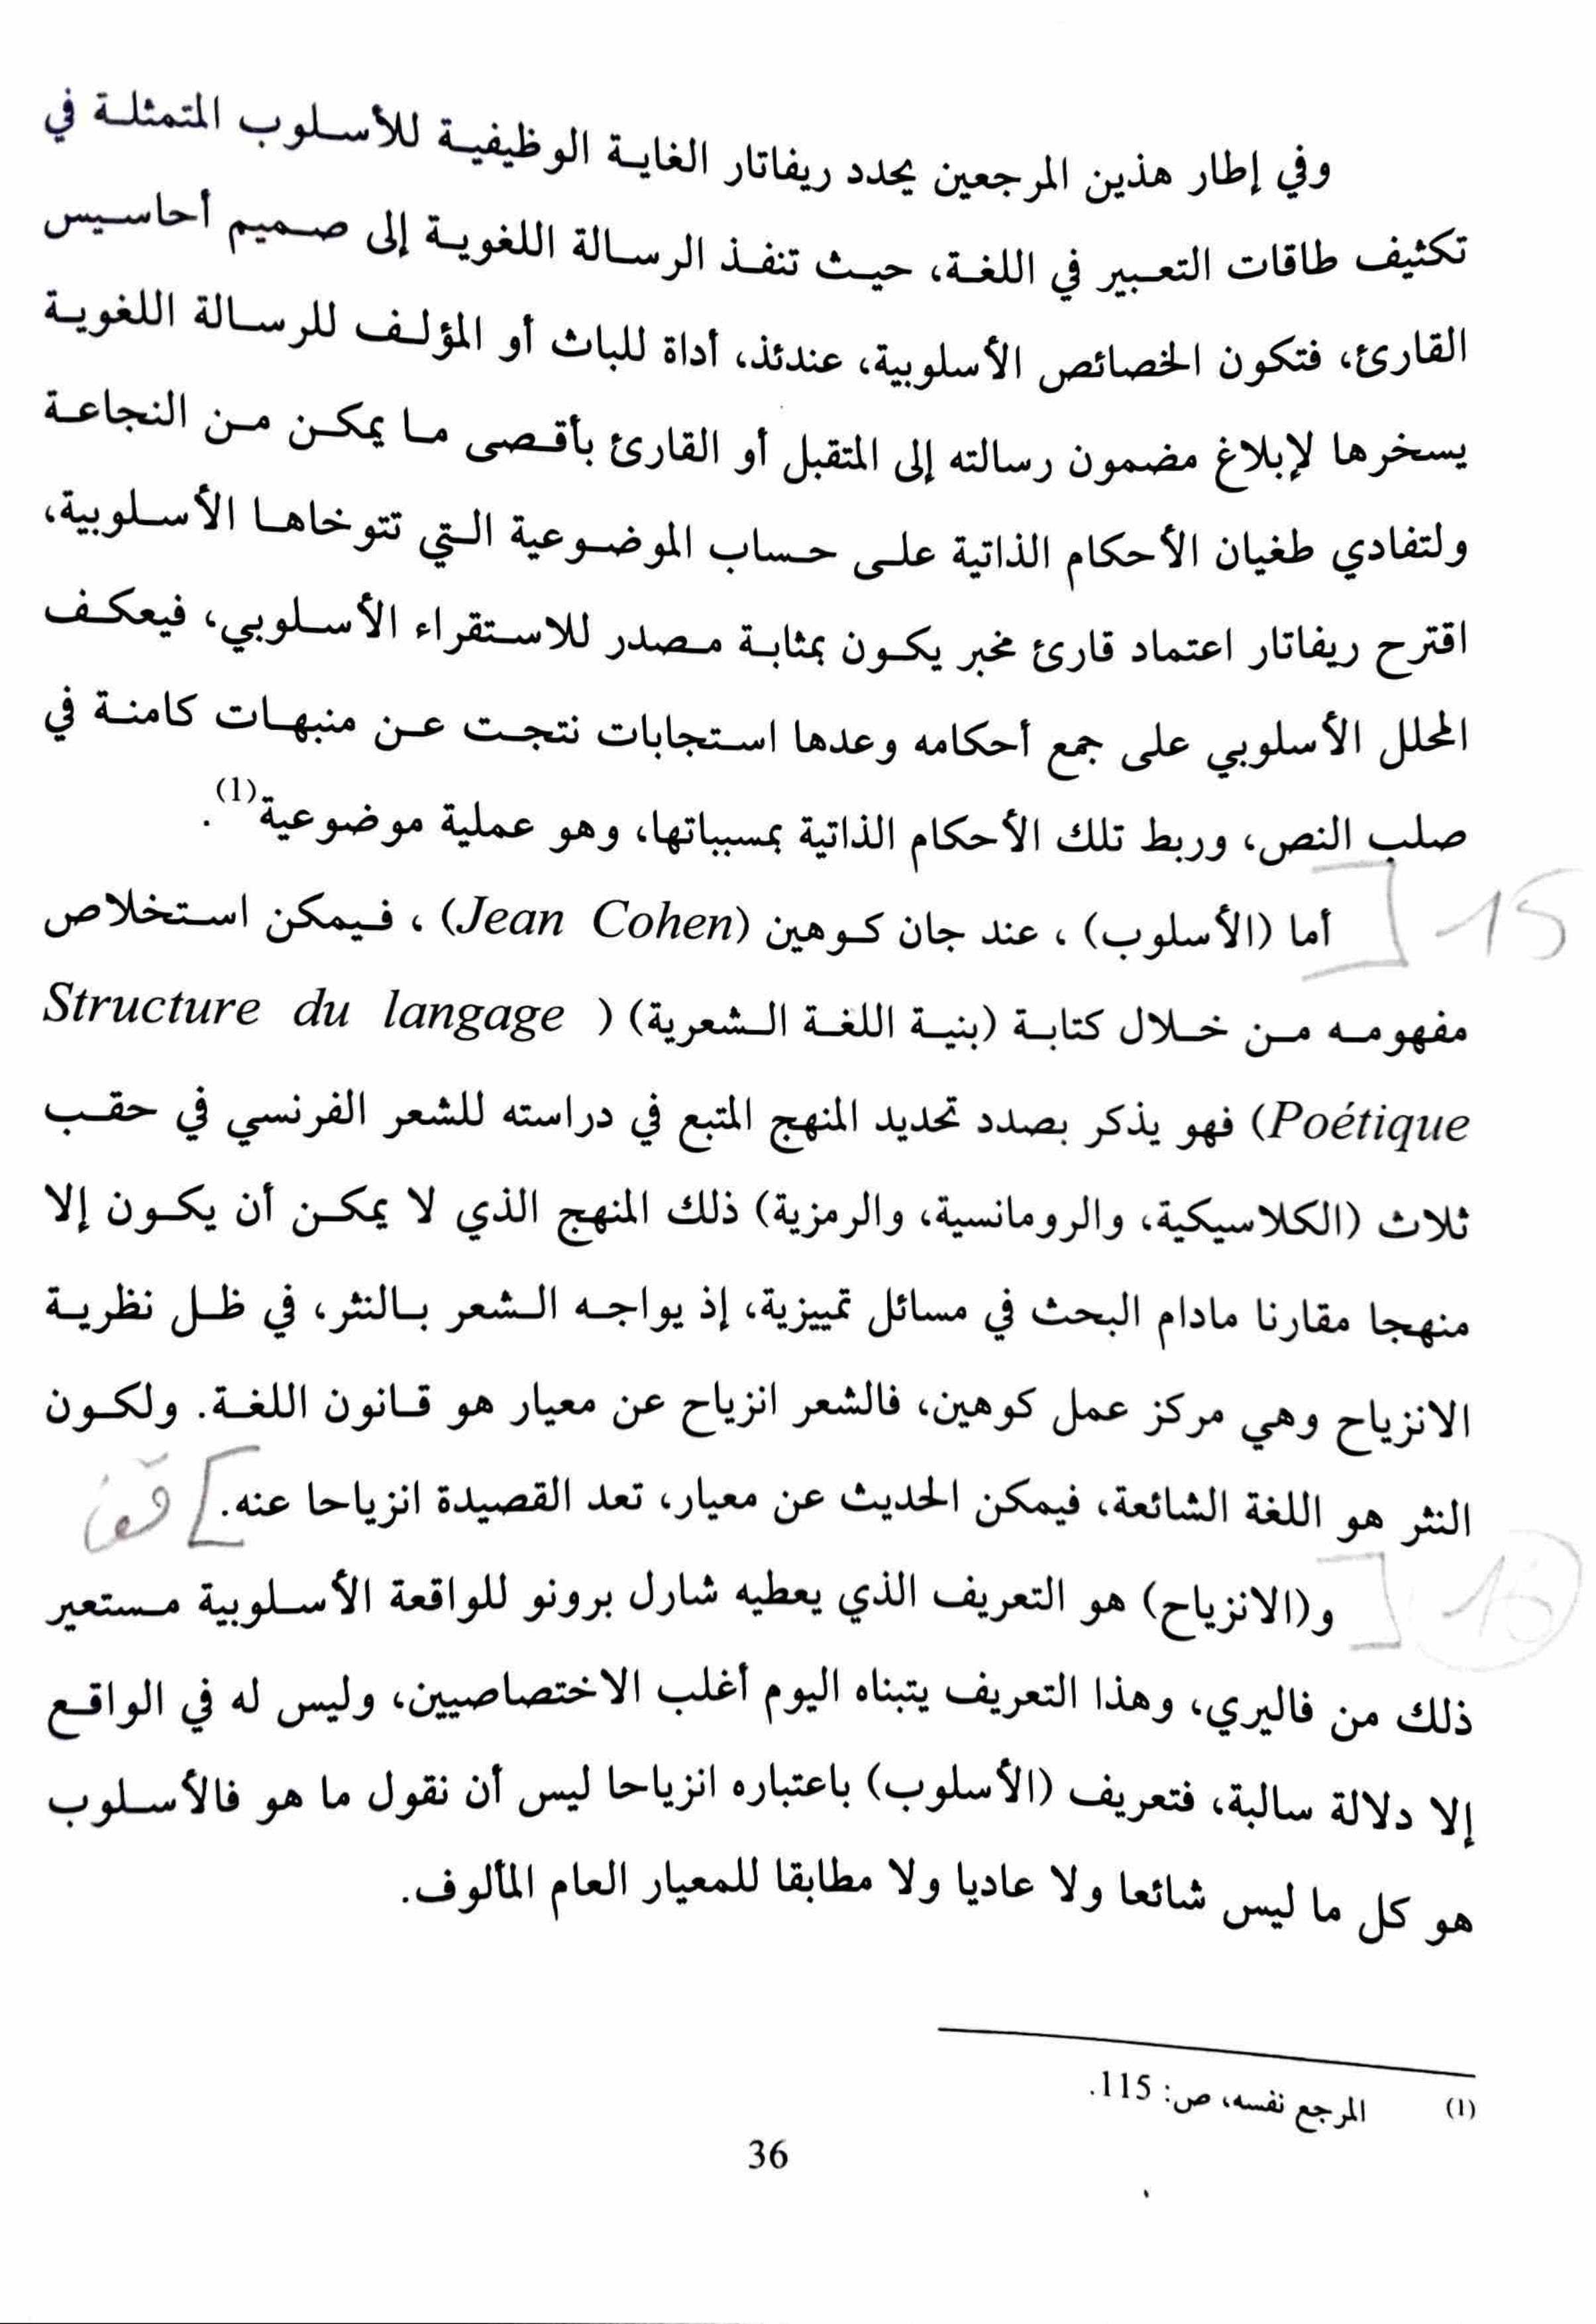 وفي إطار هذين المرجعين يحدد ريفاتار الغاية الوظيفية للأسلوب المتمثلة في
تكثيف طاقات التعبير في اللغة، حيث تنفذ الرسالة اللغوية إلى صميم أحاسيس
القارئ، فتكون الخصائص الأسلوبية، عندئذ، أداة للباث أو المؤلف للرسالة اللغوية
يسخرها لإبلاغ مضمون رسالته إلى المتقبل أو القارئ بأقصى ما يمكن من النجاعة
ولتفادي طغيان الأحكام الذاتية على حساب الموضوعية التي تتوخاها الأسلوبية،
اقترح ريفاتار اعتماد قارئ مخبر يكون بمثابة مصدر للاستقراء الأسلوبي، فيعكف
المحلل الأسلوبي على جمع أحكامه وعدها استجابات نتجت عن منبهات كامنة في
صلب النص، وربط تلك الأحكام الذاتية بمسبباتها، وهو عملية موضوعية(1).
أما (الأسلوب) ، عند جان كوهين (Jean Cohen) ، فيمكن استخلاص
15
مفهومه من خلال كتابة (بنية اللغة الشعرية) ( Structure du langage
Poétique) فهو يذكر بصدد تحديد المنهج المتبع في دراسته للشعر الفرنسي في حقب
ثلاث (الكلاسيكية، والرومانسية، والرمزية) ذلك المنهج الذي لا يمكن أن يكون إلا
منهجا مقارنا مادام البحث في مسائل تمييزية، إذ يواجه الشعر بالنثر، في ظل نظرية
الانزياح وهي مركز عمل كوهين، فالشعر انزياح عن معيار هو قانون اللغة. ولكون
النثر هو اللغة الشائعة، فيمكن الحديث عن معيار، تعد القصيدة انزياحا عنه.
و(الانزياح) هو التعريف الذي يعطيه شارل برونو للواقعة الأسلوبية مستعير
ذلك من فاليري، وهذا التعريف يتبناه اليوم أغلب الاختصاصيين، وليس له في الواقع
إلا دلالة سالبة، فتعريف (الأسلوب) باعتباره انزياحا ليس أن نقول ما هو فالأسلوب
هو كل ما ليس شائعا ولا عاديا ولا مطابقا للمعيار العام المألوف.
(1) المرجع نفسه، ص: 115.
36